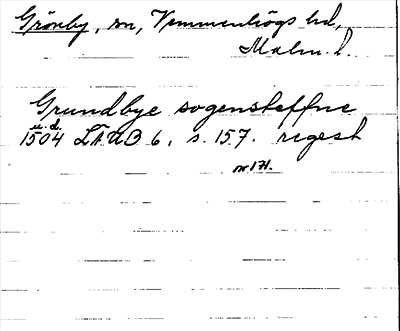 Grönby, sn, Vemmenhögs hd,
Malm. l.
Grundbye sogensteffne
u.d.
1504 LÄUB 6, s. 157. regest
nr 171.